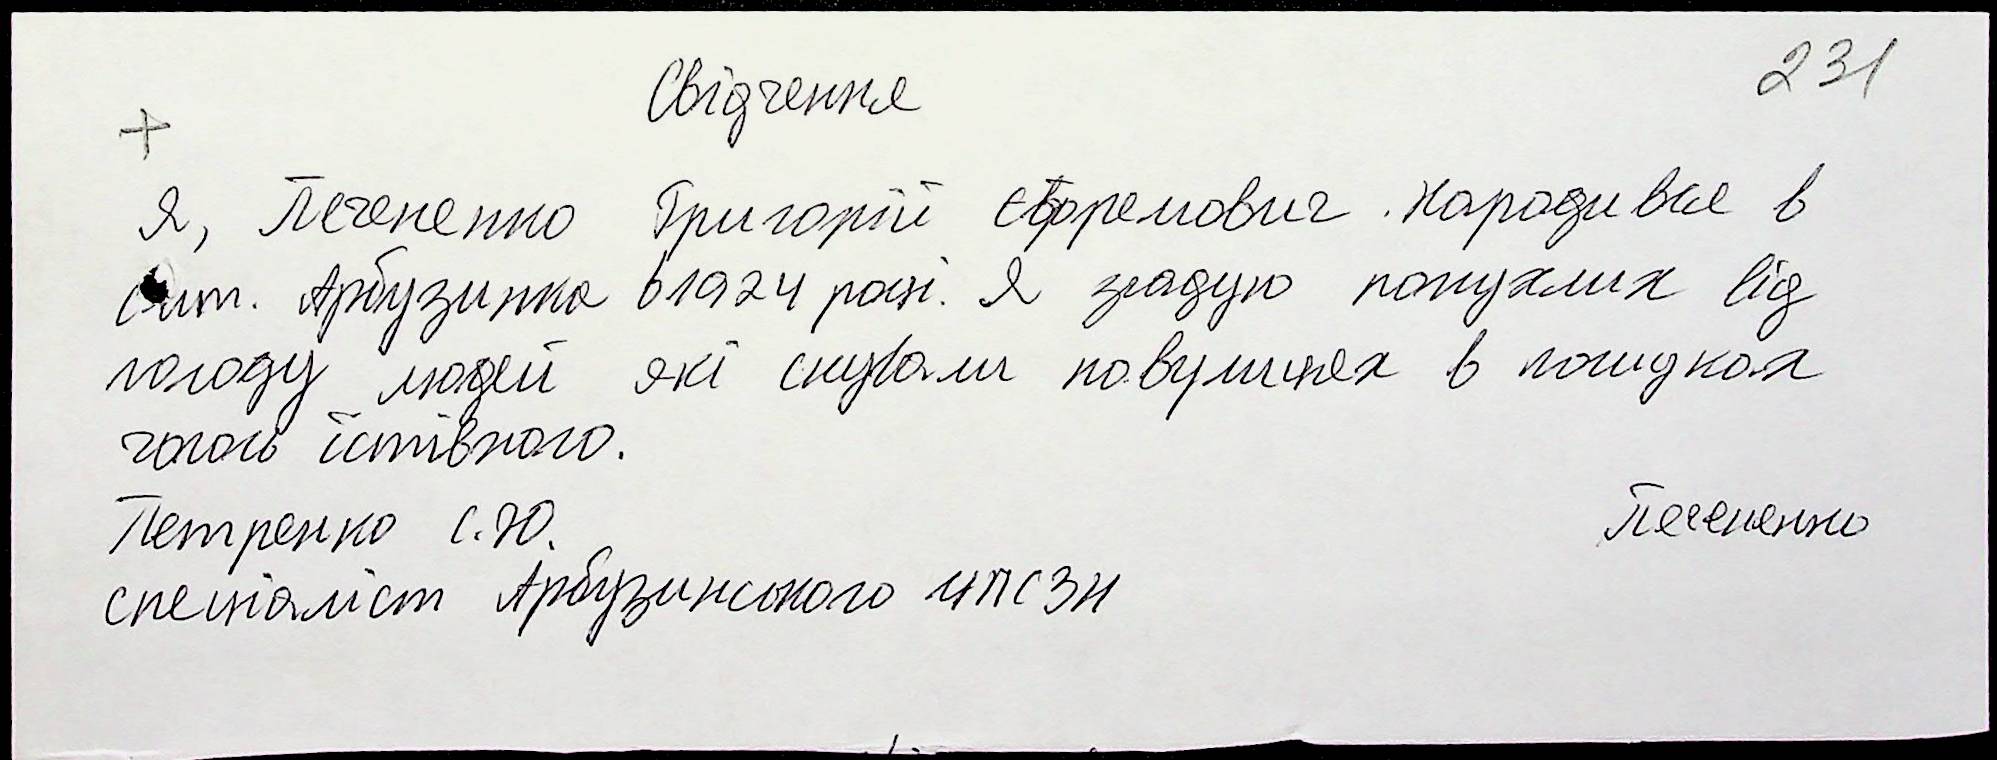 231
Свідчення
+
Я, Печененко Григорій Єфремович. Народився в
смт. Арбузинка в 1924 році. Я згадую попухлих від
голоду людей які снували по вулицях в пошуках
чогось їстівного.
Печененко
Петренко С.Ю.
спеціаліст Арбузинського ЦПСЗН